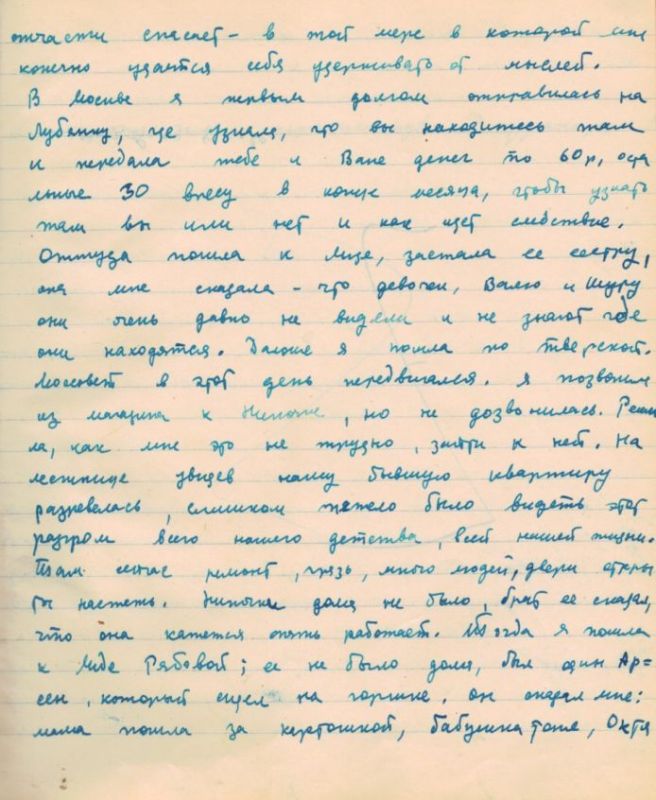 отчасти спасает – в той мере в которой мне
конечно удается себя удерживать от мыслей.
В Москве я первым долгом отправилась на
Лубянку, где узнала, что вы находитесь там
и передала тебе и Ване денег по 60 р, оста
льные 30 внесу в конце месяца, чтобы узнать
там вы или нет и как идет следствие.
Оттуда пошла к Лизе, застала ее сестру,
она мне сказала – что девочки, Валю и Шуру
они очень давно не видели и не знают где
они находятся. Дальше я пошла по Тверской.
Моссовет в этот день передвигался. Я позвонила
из магазина к Ниночке, но не дозвонилась. Реши
ла, как мне это не трудно, зайти к ней. На
лестнице увидев нашу бывшую квартиру
разревелась, слишком тяжело было видеть этот
разгром всего нашего детства, всей нашей жизни.
Там сейчас ремонт, грязь, много людей, двери откры
ты настежь. Ниночки дома не было, брат ее сказал,
что она кажется опять работает. Тогда я пошла
к Лиде Рябовой; ее не было дома, был один Ар=
сен, который сидел на горшке, он сказал мне:
мама пошла за картошкой, бабушка тоже,